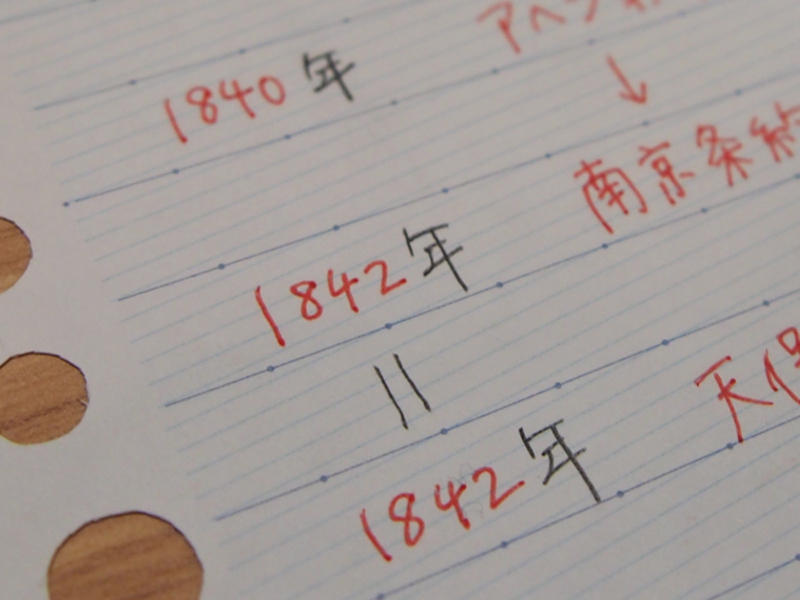 1840年 アヘン
↓
1842年 南京条約
||
1842年 天保